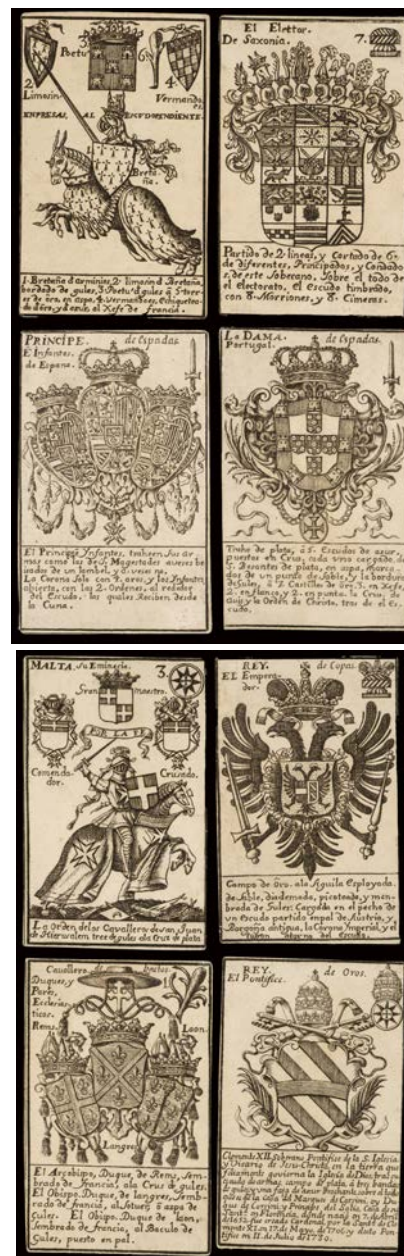 2
Poetu
3
6.
4.
Limosin
Vermando
es.
EMPRESAS, AL ESCUDO PENDIENTE.
1.
Breta
ña.
1. Bretaña d'arminios, 2. limosin d Bretaña,
bordado de gules, 3. Poetu d gules 5. tor-
res de oro, en aspa. 4. Vermandoes, Echiquetea-
do d'oro, y d'azur, al Xefe de francia.
El Elettor.
De Saxonia.
7.
Partido de 2. lineas, y Cortado de 6.
de diferentes, Principados, y Condado
s, de este Soberano. Sobre el todo de
el electorato, el Escudo timbrado,
con 8. Morriones, y 8. Cimeras.
PRINCIPE.
de Espadas.
E Infantes.
de Espana.
El Principe Ynfantes, trahen sus ar
mas como las de S. Magestades aveses bri
sados de un lambel, y o. veses no.
La Corona Solo con 4. arcos, y los Ynfantes,
abierta, con las 2. Ordenes, al rededor
del Escudo, las quales Reciben desde
la Cuna.
La DAMA.
de Espadas.
Portugal.
Trahe de plata, a 5. Escudos de azur,
puestos en Cruz, cada vno cargado de
5. Besantes de plata, en aspa, marca
dos de un punto de Sable, y la bordura
de Gules, a 7. Castillos de oro, 3. en Xefe,
2. en flanco, y 2. en punta. la Cruz, de
Auis y la Orden de Christo, tras de el Es
cudo.
MALTA. Su Eminecia.
3.
Gran Maestro.
POR LA FE
Comenda
dor.
Crusado.
La Orden de los Cavalleros de san Juan
de Hierusalem, trae de gules, ala Cruz de plata
REY.
de Copas.
EL Empera
dor.
Campo de Oro. ala Aguila Esployada.
de Sable, diademada, picoteada, y mem
brada de Gules: Cargada en el pecho de
un Escudo partido en pal de Austria, y
Borgoña antigua, la Corona Imperial, y el
tuson entorno del Escudo.
Cavallero
de bastos.
Duques, y
Pares,
Ecclesias
ticos.
1.
Rems.
Laon.
Langres
El Arçobispo, Duque, de Rems, Sem-
brado de francia, ala Cruz de gules.
El Obispo, Duque, de langres, Sembra-
do de francia, al Sotuer, o aspa de
Gules. El Obispo, Duque de laon,
Sembrado de francia, al Baculo de
Gules, puesto en pal.
REY.
de Oros.
El Pontifice.
Clemente XII. Soberano Pontifice de la S. Iglesia
y Vicario de Jesu-Christo, en la tierra que
felismente govierna la Iglesia de Dios; tras el es
cudo de